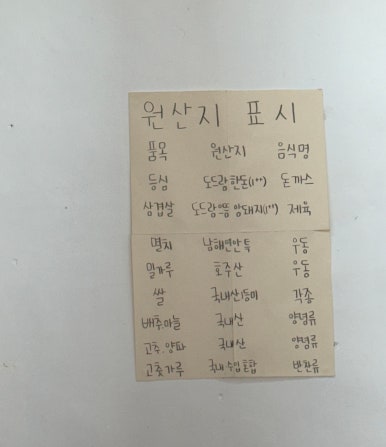 원산지 표시
품목 원산지 음식명
등심 도드람한돈(1++) 돈까스
삼겹살 도드람으뜸암돼지(1++) 제육
멸치 남해연안 특 우동
밀가루 호주산 우동
쌀 국내산1등미 각종
배추.마늘 국내산 양념류
고추.양파 국내산 양념류
고춧가루 국내수입혼합 반찬류